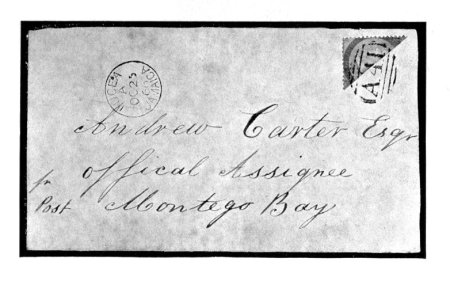 A
OC 25
JAMAICA
A41
Andrew Carter Esqr
offical Assignee
pr
Post Montego Bay